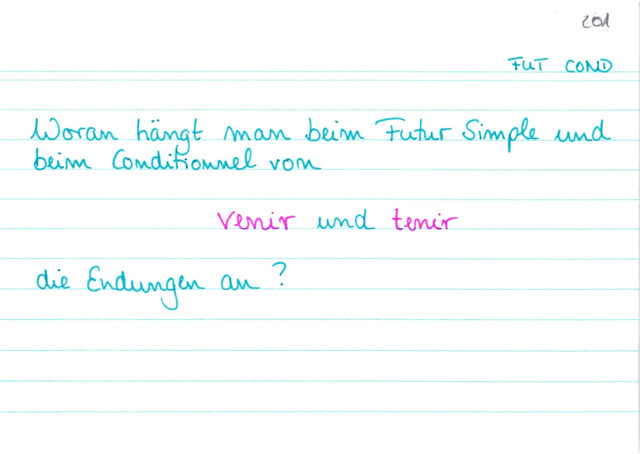 201
FUT COND
Woran hängt man beim Futur Simple und
beim Conditionnel von
venir und tenir
die Endungen an?